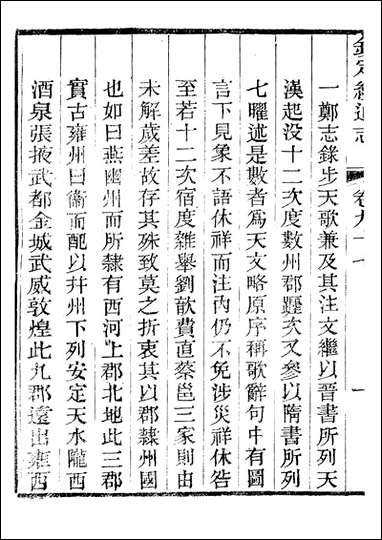 欽定續通志 卷九十七 一
一鄭志錄步天歌兼及其注文繼以晉書所列天
漢起没十二次度數州郡躔次又參以隋書所列
七曜述是數者為天文略原序稱歌辭句中有圖
言下見象不語休祥而注内仍不免涉災祥休咎
至若十二次宿度雜舉劉歆費直蔡邕三家則由
未解歲差故存其殊致莫之折衷其以郡隸州國
也如曰燕幽州而所隸有西河上郡北地此三郡
實古雍州曰衞而配以并州下列安定天水隴西
酒泉張掖武都金城武威敦煌此九郡遠出雍西